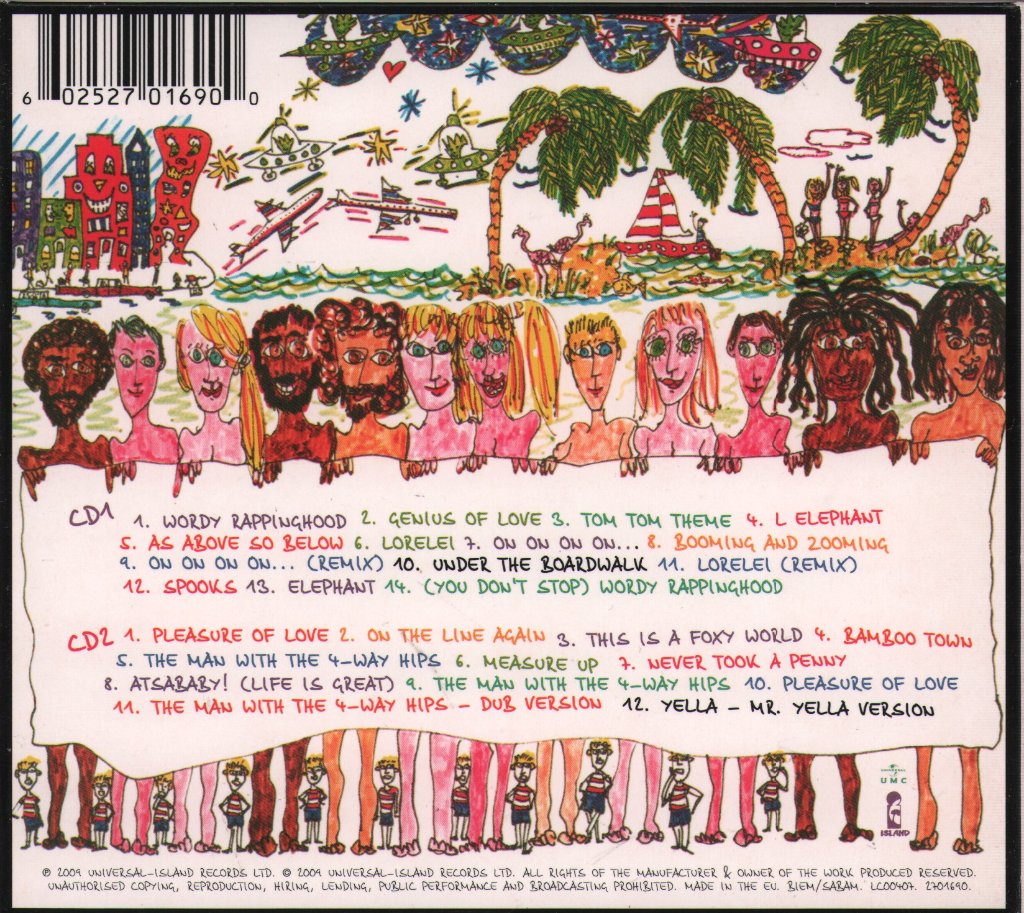 6 02527 01690 0
CD1 1. WORDY RAPPINGHOOD 2. GENIUS OF LOVE 3. TOM TOM THEME 4. L ELEPHANT
5. AS ABOVE SO BELOW 6. LORELEI 7. ON ON ON ON... 8. BOOMING AND ZOOMING
9. ON ON ON ON... (REMIX) 10. UNDER THE BOARDWALK 11. LORELEI (REMIX)
12. SPOOKS 13. ELEPHANT 14. (YOU DON'T STOP) WORDY RAPPINGHOOD
CD2 1. PLEASURE OF LOVE 2. ON THE LINE AGAIN 3. THIS IS A FOXY WORLD 4. BAMBOO TOWN
5. THE MAN WITH THE 4-WAY HIPS 6. MEASURE UP 7. NEVER TOOK A PENNY
8. ATSABABY! (LIFE IS GREAT) 9. THE MAN WITH THE 4-WAY HIPS 10. PLEASURE OF LOVE
11. THE MAN WITH THE 4-WAY HIPS - DUB VERSION 12. YELLA - MR. YELLA VERSION
UNIVERSAL
UMC
ISLAND
℗ 2009 UNIVERSAL-ISLAND RECORDS LTD. © 2009 UNIVERSAL-ISLAND RECORDS LTD. ALL RIGHTS OF THE MANUFACTURER & OWNER OF THE WORK PRODUCED RESERVED.
UNAUTHORISED COPYING, REPRODUCTION, HIRING, LENDING, PUBLIC PERFORMANCE AND BROADCASTING PROHIBITED. MADE IN THE EU. BIEM/SABAM. LC00407. 2701690.